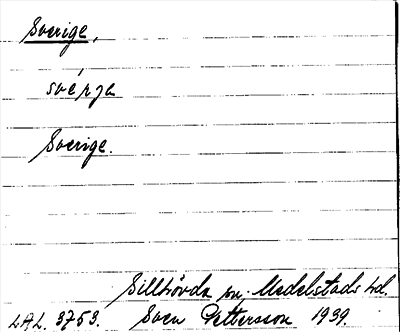 Sverige,
svérja
Sverige.
Sillhövda sn, Medelstads hd.
LAL. 3753. Sven Pettersson 1939